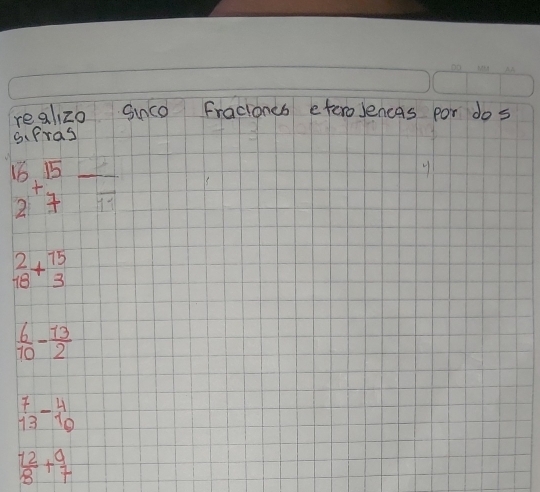 DD MM AA
realizo sinco Fraciones eterojeneas por dos
sifras
16/2 + 15/7 = —/11
2/18 + 15/3
6/10 - 13/2
7/13 - 4/10
12/8 + 9/7